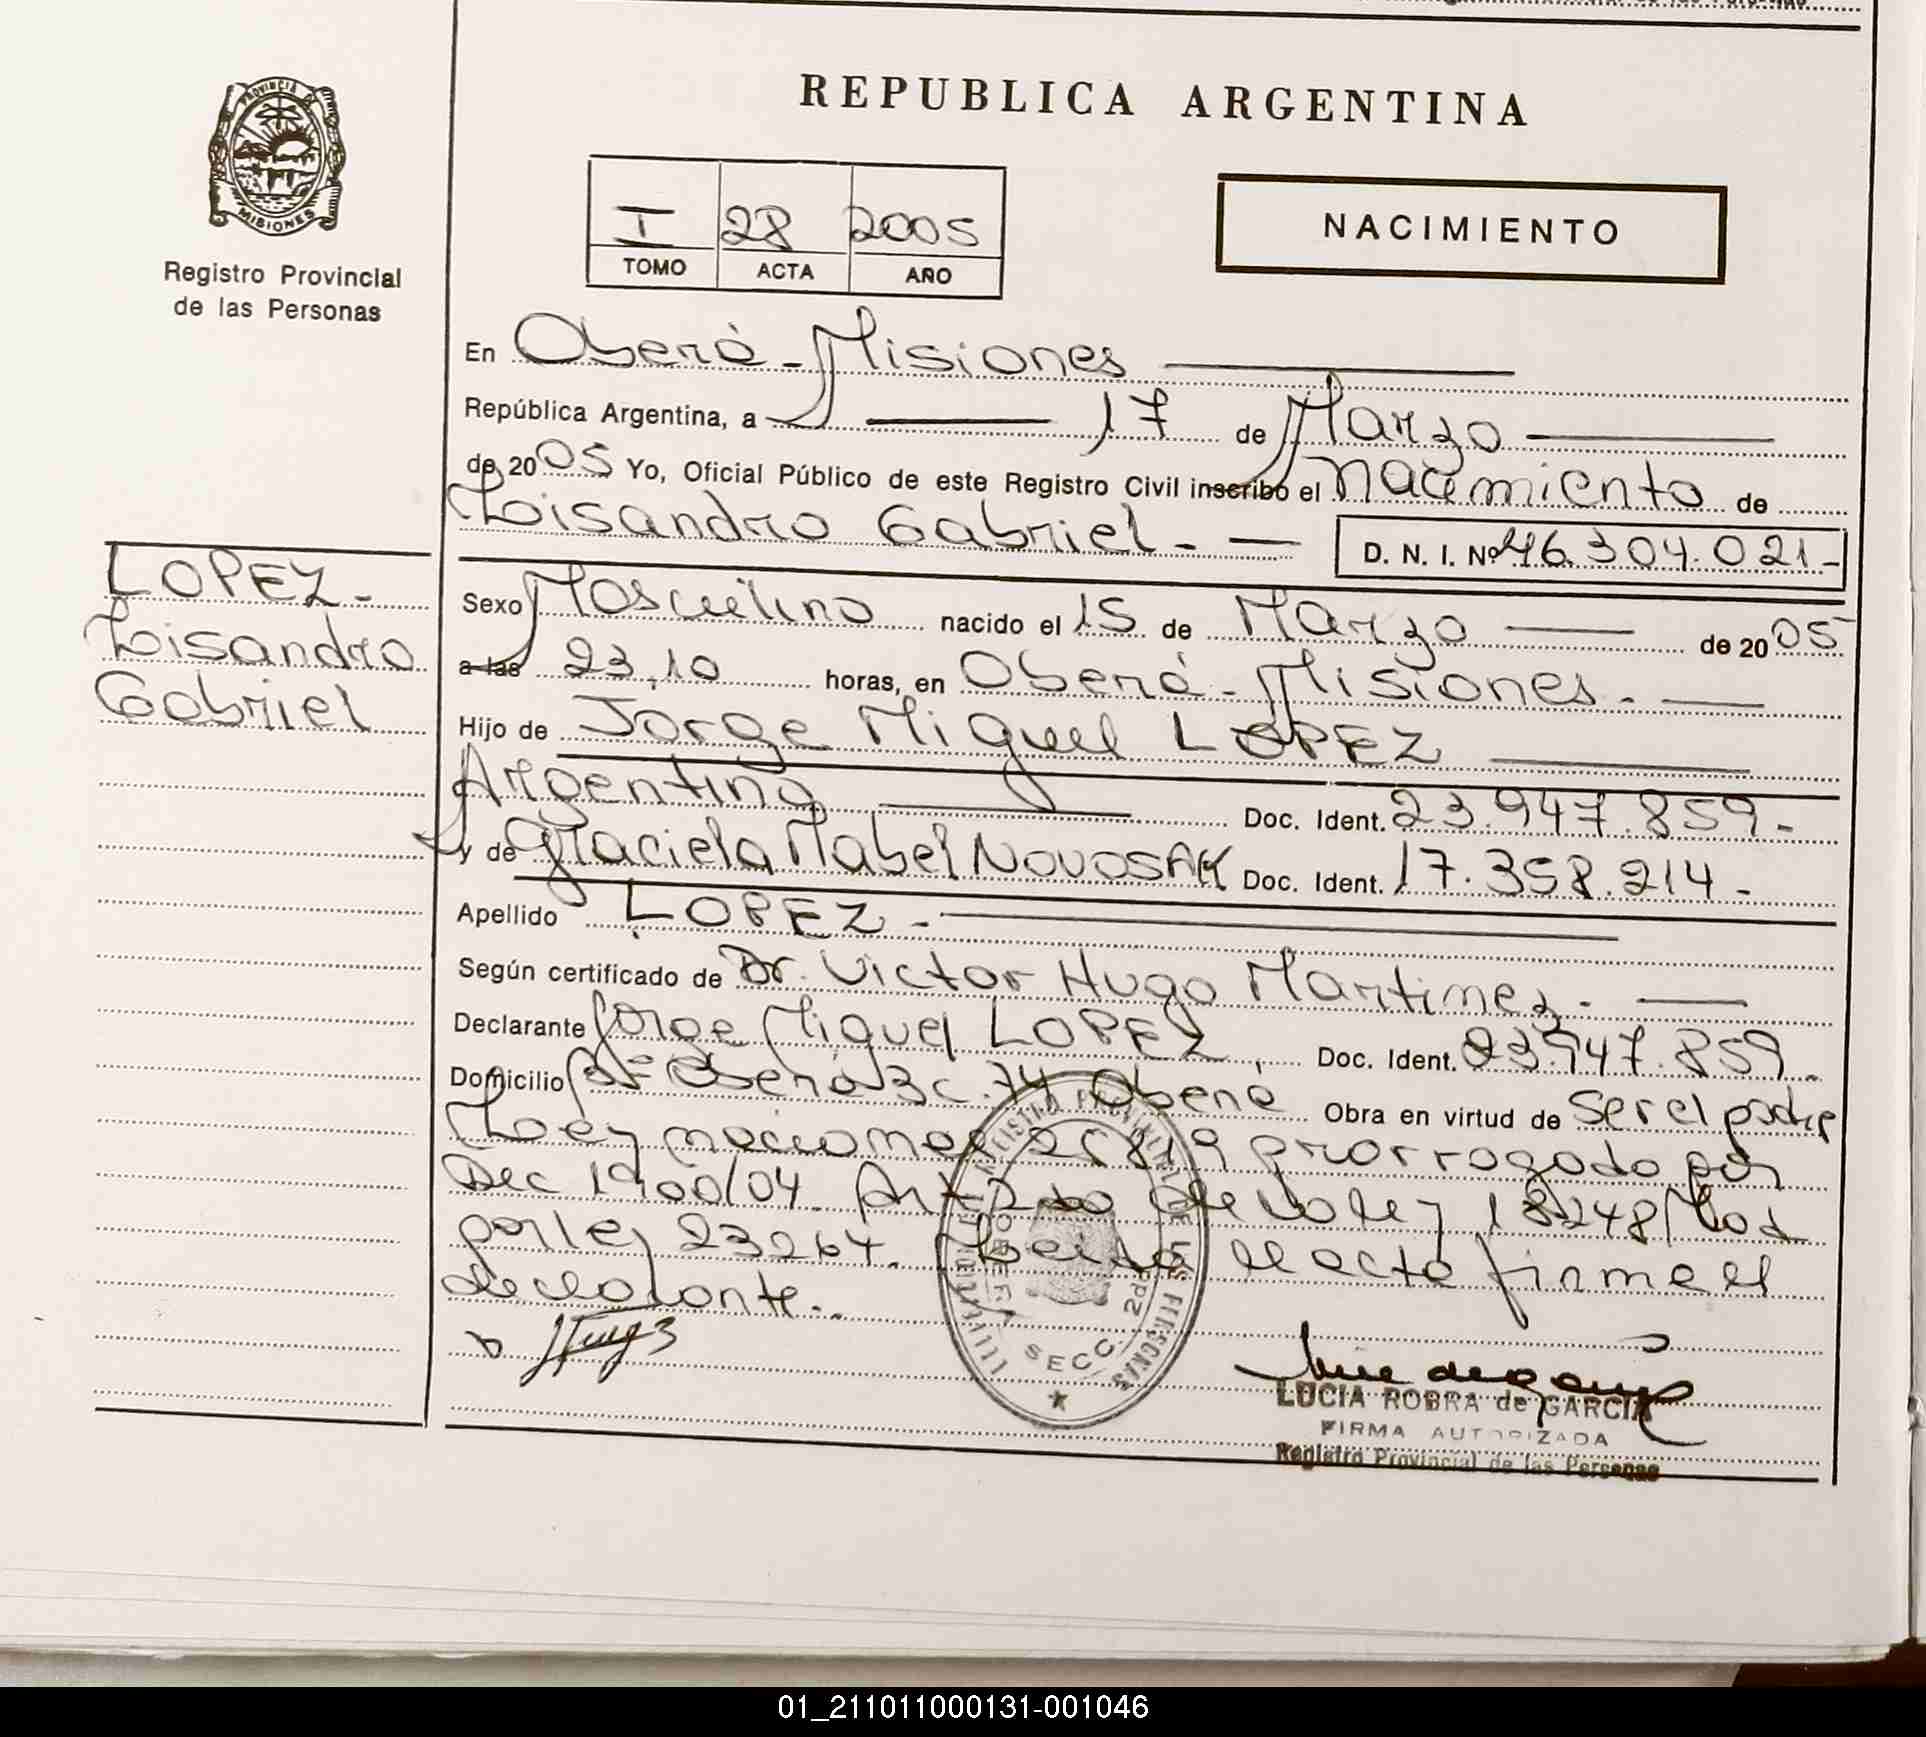 REPUBLICA ARGENTINA
PROVINCIA DE
MISIONES
Registro Provincial
de las Personas
I 28 2005
TOMO ACTA AÑO
NACIMIENTO
En Oberá - Misiones
República Argentina, a 17 de Marzo
de 2005 Yo, Oficial Público de este Registro Civil inscribo el nacimiento de
Lisandro Gabriel - D. N. I. Nº 46.304.021-
LOPEZ -
Lisandro
Gabriel
Sexo Masculino nacido el 15 de Marzo de 2005
a las 23,10 horas, en Oberá - Misiones.
Hijo de Jorge Miguel LOPEZ
Argentino Doc. Ident. 23.947.859-
y de Graciela Mabel NOVOSAK Doc. Ident. 17.358.214-
Apellido LOPEZ -
Según certificado de Dr. Victor Hugo Martinez.
Declarante Jorge Miguel LOPEZ Doc. Ident. 23.947.859.
Domicilio Oberá 3 c. 74 Oberá Obra en virtud de ser el padre
Ley nacional 25819 prorrogado por
Dec 1900/04. Art 2do de la ley 18248 Mod
por ley 23264. Leida el acta firma el
declarante.
SECC. 2da
LUCIA ROBRA de GARCIA
FIRMA AUTORIZADA
Registro Provincial de las Personas
01_211011000131-001046